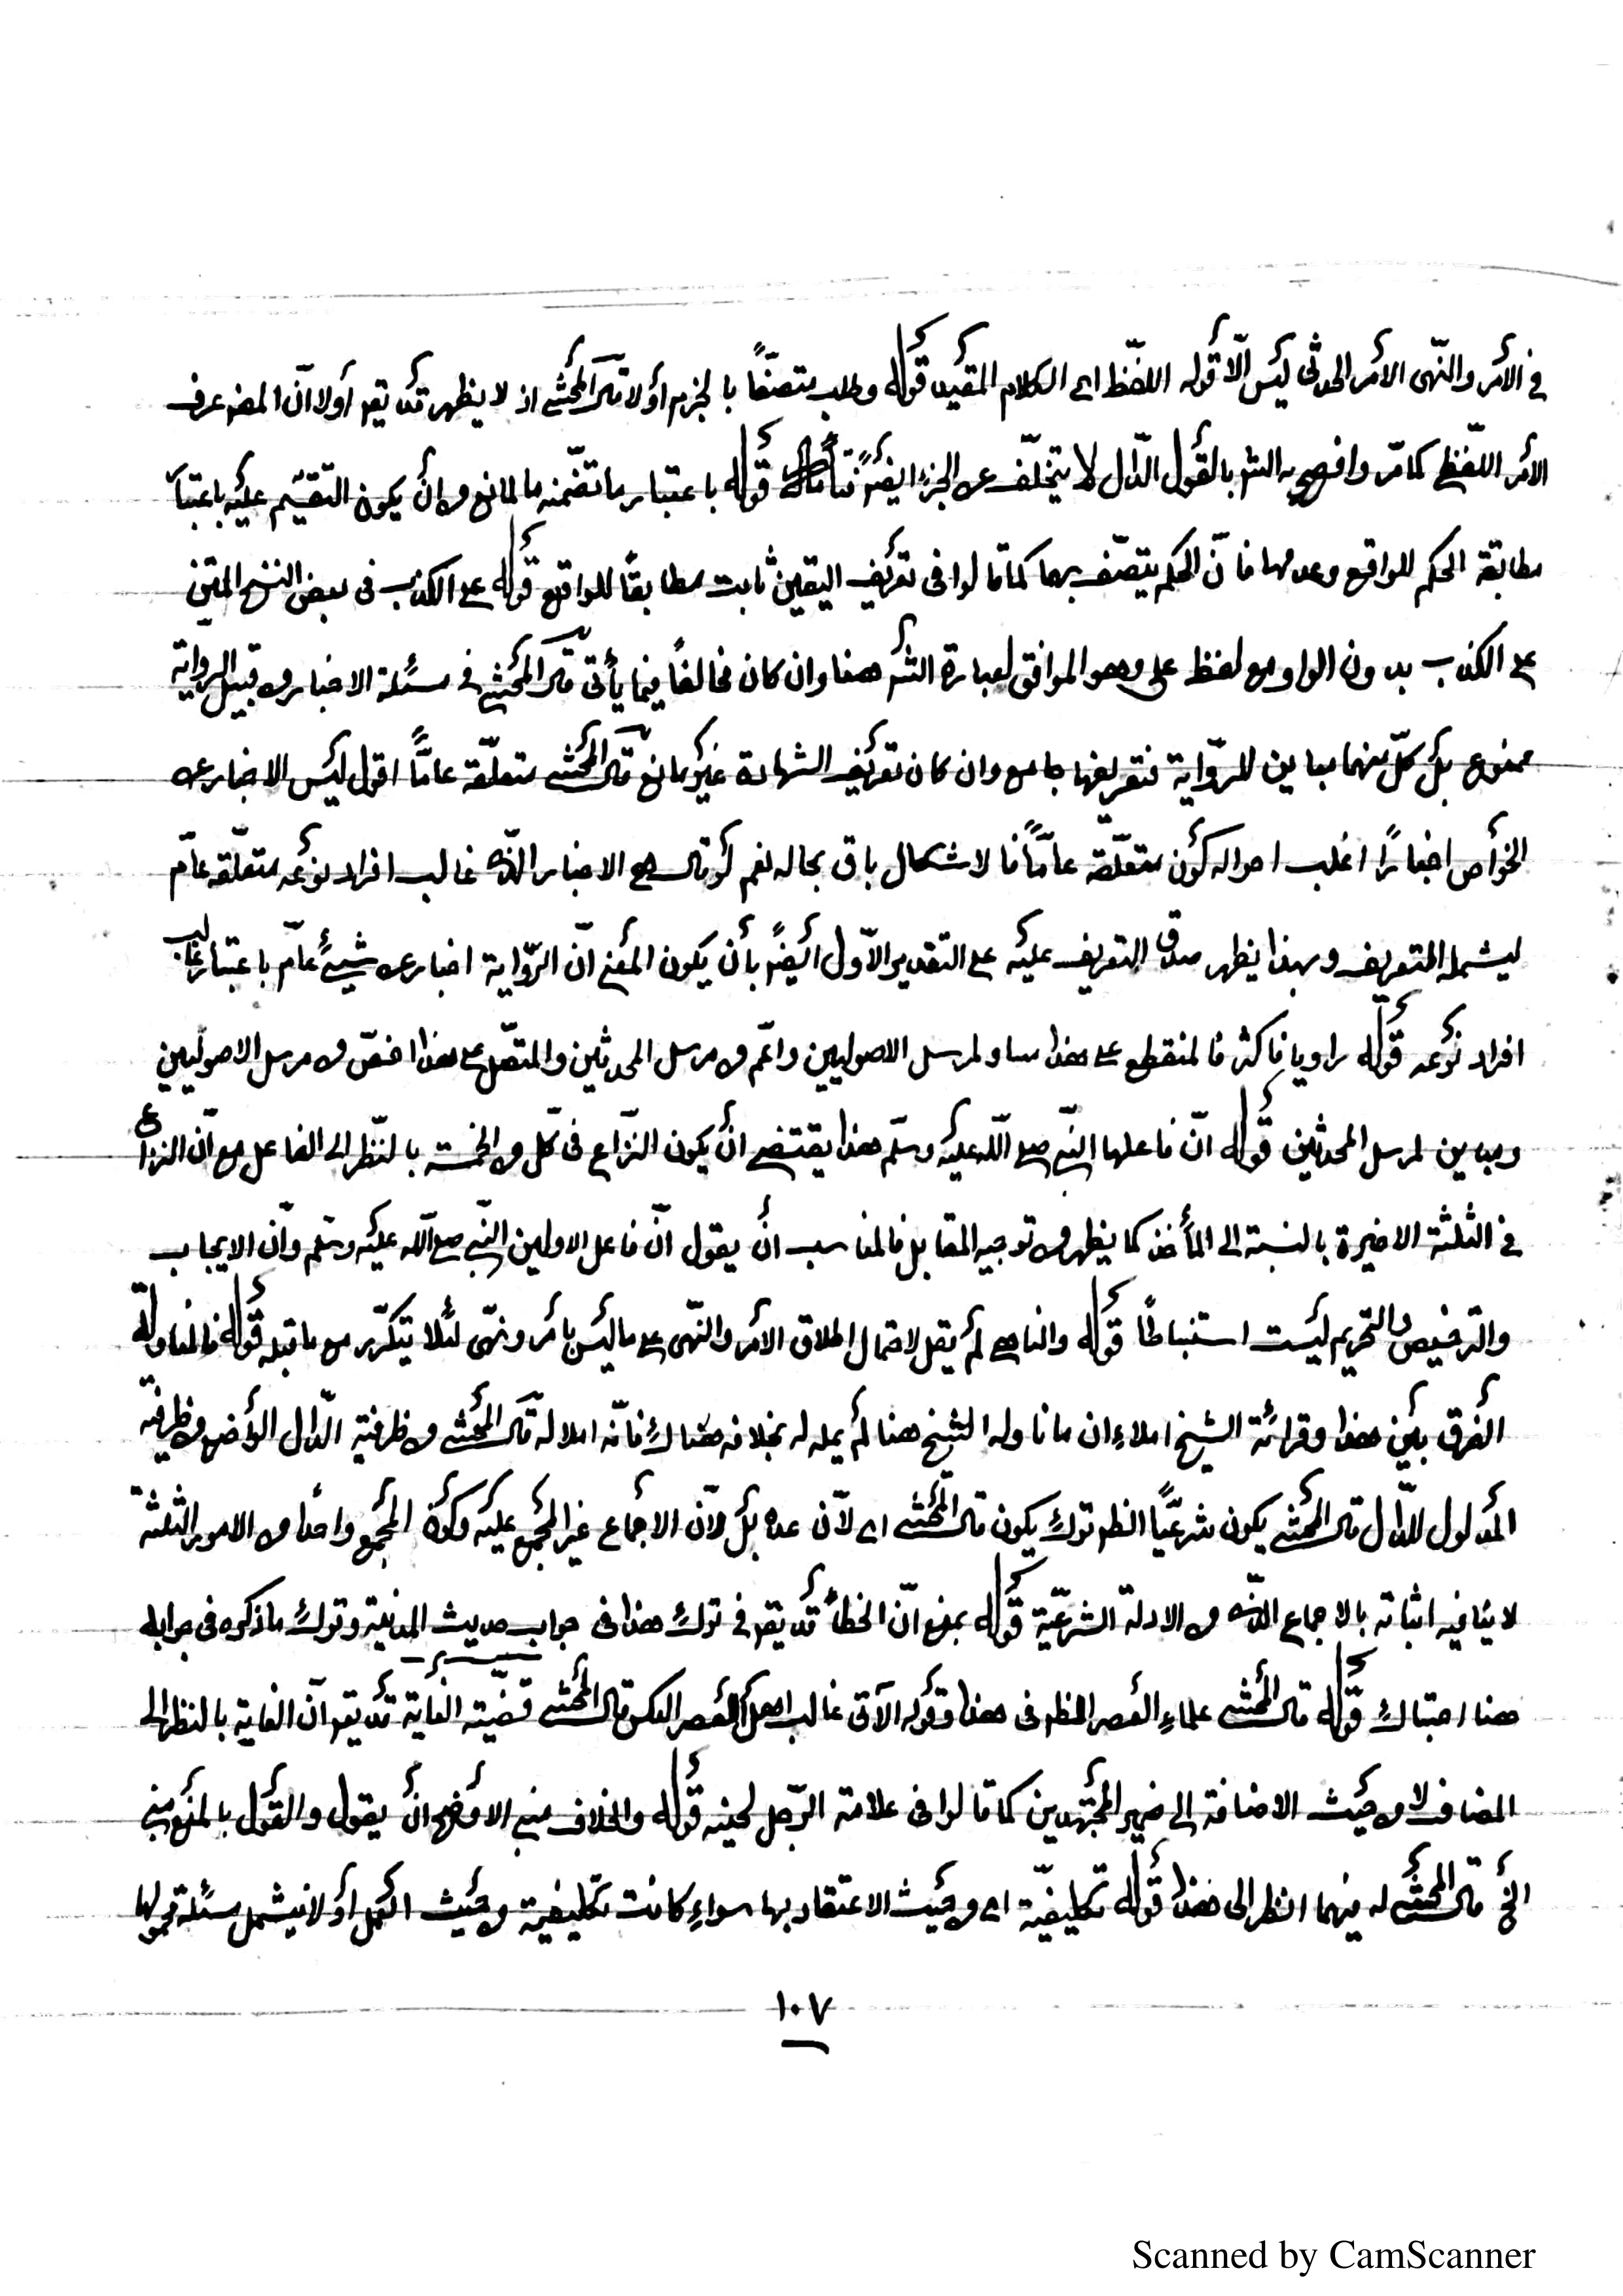 في الأمر والنّهى الأمر الحدثى ليس الّا قوله اللفظ اى الكلام المقيد قوله وطلب متصفًا بالجزم أولا قال المحشى اذ لا يظهر قد يقر أولا انّ المصر عرف
الأمر اللفظ كما مرّ وافصح به الشر بالقول الدّال لا يتخلّف عن الجزء ايضًا قوله باعتبار ما تضمنه ما المانع من أن يكون التقسيم عليه باعتبار
مطابقة الحكم للواقع وعدمها فانّ الحكم يتصف بهما كما قالوا فى تعريف اليقين ثابت مطابقًا للواقع قوله على الكذب فى بعض النسخ المتن
على الكذب بدون الواو مع لفظ على وهو الموافق لعبارة الشر هنا وان كان مخالفًا فيما يأتى قال المحشى فى مسئلة الاخبار من قبيل الرواية
ممنوع بل كلّ منهما مباين للرّواية فتعريفها جامع وان كان تعريف الشهادة غير مانع قال المحشى متعلّقة عامًّا اقول ليس الاخبار عن
الخواص اخبارًا اغلب احواله كون متعلّقة عامًّا فالاشكال باق بحاله نعم لو قال هى الاخبار الّذى غالب افراد نوعه متعلّقة عامّ
ليشمله التعريف وبهذا يظهر صدق التعريف عليه على التقدير الأوّل ايضًا بأن يكون المعنى انّ الرّواية اخبار عن شيئ عامّ باعتبار غالب
افراد نوعه قوله راويا فاكثر فالمنقطع على هذا مساو لمرسل الاصوليين واعمّ من مرسل المحدثين والمتصل على هذا اخصّ من مرسل الاصوليين
ومباين لمرسل المحدثين قوله انّ فاعلها النّبى صلى اللّه عليه وسلّم هذا يقتضى أن يكون النزاع فى كلّ من الخمسة بالنّظر الى الفاعل مع انّ النزاع
فى الثلثة الاخيرة بالنسبة الى المأخذ كما يظهر من توجيه المقابل فالمناسب أن يقول انّ فاعل الاولين النّبى صلى اللّه عليه وسلم وأنّ الايجاب
والترخيص والتحريم ليست استنباطًا قوله والناهى لم يقل لاحتمال اطلاق الأمر والنّهى على ما ليس بأمر ونهى لئلا يتكرّر مع ما قبله قوله فالمناولة
الفرق بين هذا وقرائة الشيخ املاء ان ما ناوله الشيخ هنا لم يمله له بخلافه هناك فانّه املا له قال المحشى من ظرفية الدّال الأوضح من ظرفية
المدلول للدّال قال المحشى يكون شرعيًّا انظر ترك يكون قال المحشى اى لأن عده بل لأن الاجماع غير المجمع عليه وكون المجمع واحدًا من الامور الثلثة
لا ينافيه اثباته بالاجماع الذى من الادلة الشرعيّة قوله بمنع انّ الخطأ قد يقر فى ترك هذا فى جواب حديث المدينة وترك ما ذكره فى جوابه
هنا احتباك قوله قال المحشى علماء العصر انظر فى هذا وقوله الآتى غالب اهل العصر العكس قال المحشى قضيّته الغاية قد يقر انّ الغاية بالنظر الى
المضاف لا من حيث الاضافة الى ضمير المجتهدين كما قالوا فى علامة الرّجل لحيته قوله والخلاف مبنى الأوضح أن يقول والقول بالمنع مبنى
الخ قال المحشى له فيهما انظر الى هذا قوله تكليفيّة اى من حيث الاعتقاد بها سواء كانت تكليفية من حيث العمل أولا فيشمل مسئلة تحولها
١٠٧
Scanned by CamScanner